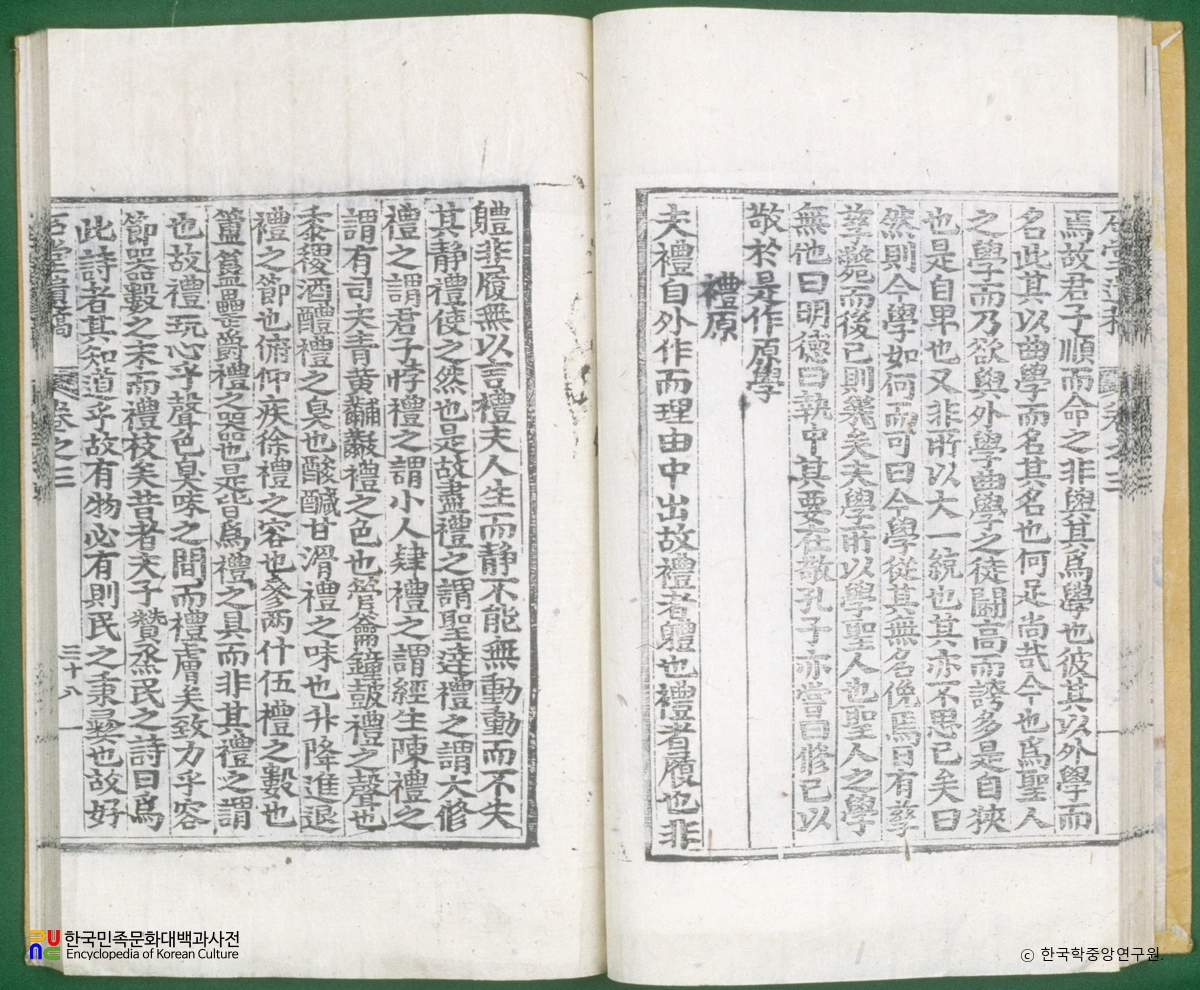 焉故君子順而命之非與其爲學也彼其以外學而
名此其以曲學而名其名也何足尚哉今也爲聖人
之學而乃欲與外學曲學之徒鬪高而誇多是自狹
也是自卑也又非所以大一統也其亦不思已矣曰
然則今學如何而可曰今學從其無名俛焉日有孳
孳斃而後已則幾矣夫學所以學聖人也聖人之學
無他曰明德曰執中其要在敬孔子亦嘗曰修己以
敬於是作原學
禮原
夫禮自外作而理由中出故禮者軆也禮者履也非
軆非履無以言禮夫人生而静不能無動動而不失
其静禮使之然也是故盡禮之謂聖達禮之謂大修
禮之謂君子悖禮之謂小人肄禮之謂經生陳禮之
謂有司夫青黄黼黻禮之色也管龠鐘鼓禮之聲也
黍稷酒醴禮之臭也酸鹹甘滑禮之味也升降進退
禮之節也俯仰疾徐禮之容也參兩什伍禮之數也
簠簋罍爵禮之器也是皆爲禮之具而非其禮之謂
也故禮玩心乎聲色臭味之間而禮膚矣致力乎容
節器數之末而禮枝矣昔者夫子贊烝民之詩曰爲
此詩者其知道乎故有物必有則民之秉彝也故好
卷之三
三十八
한국민족문화대백과사전
Encyclopedia of Korean Culture
ⓒ 한국학중앙연구원.